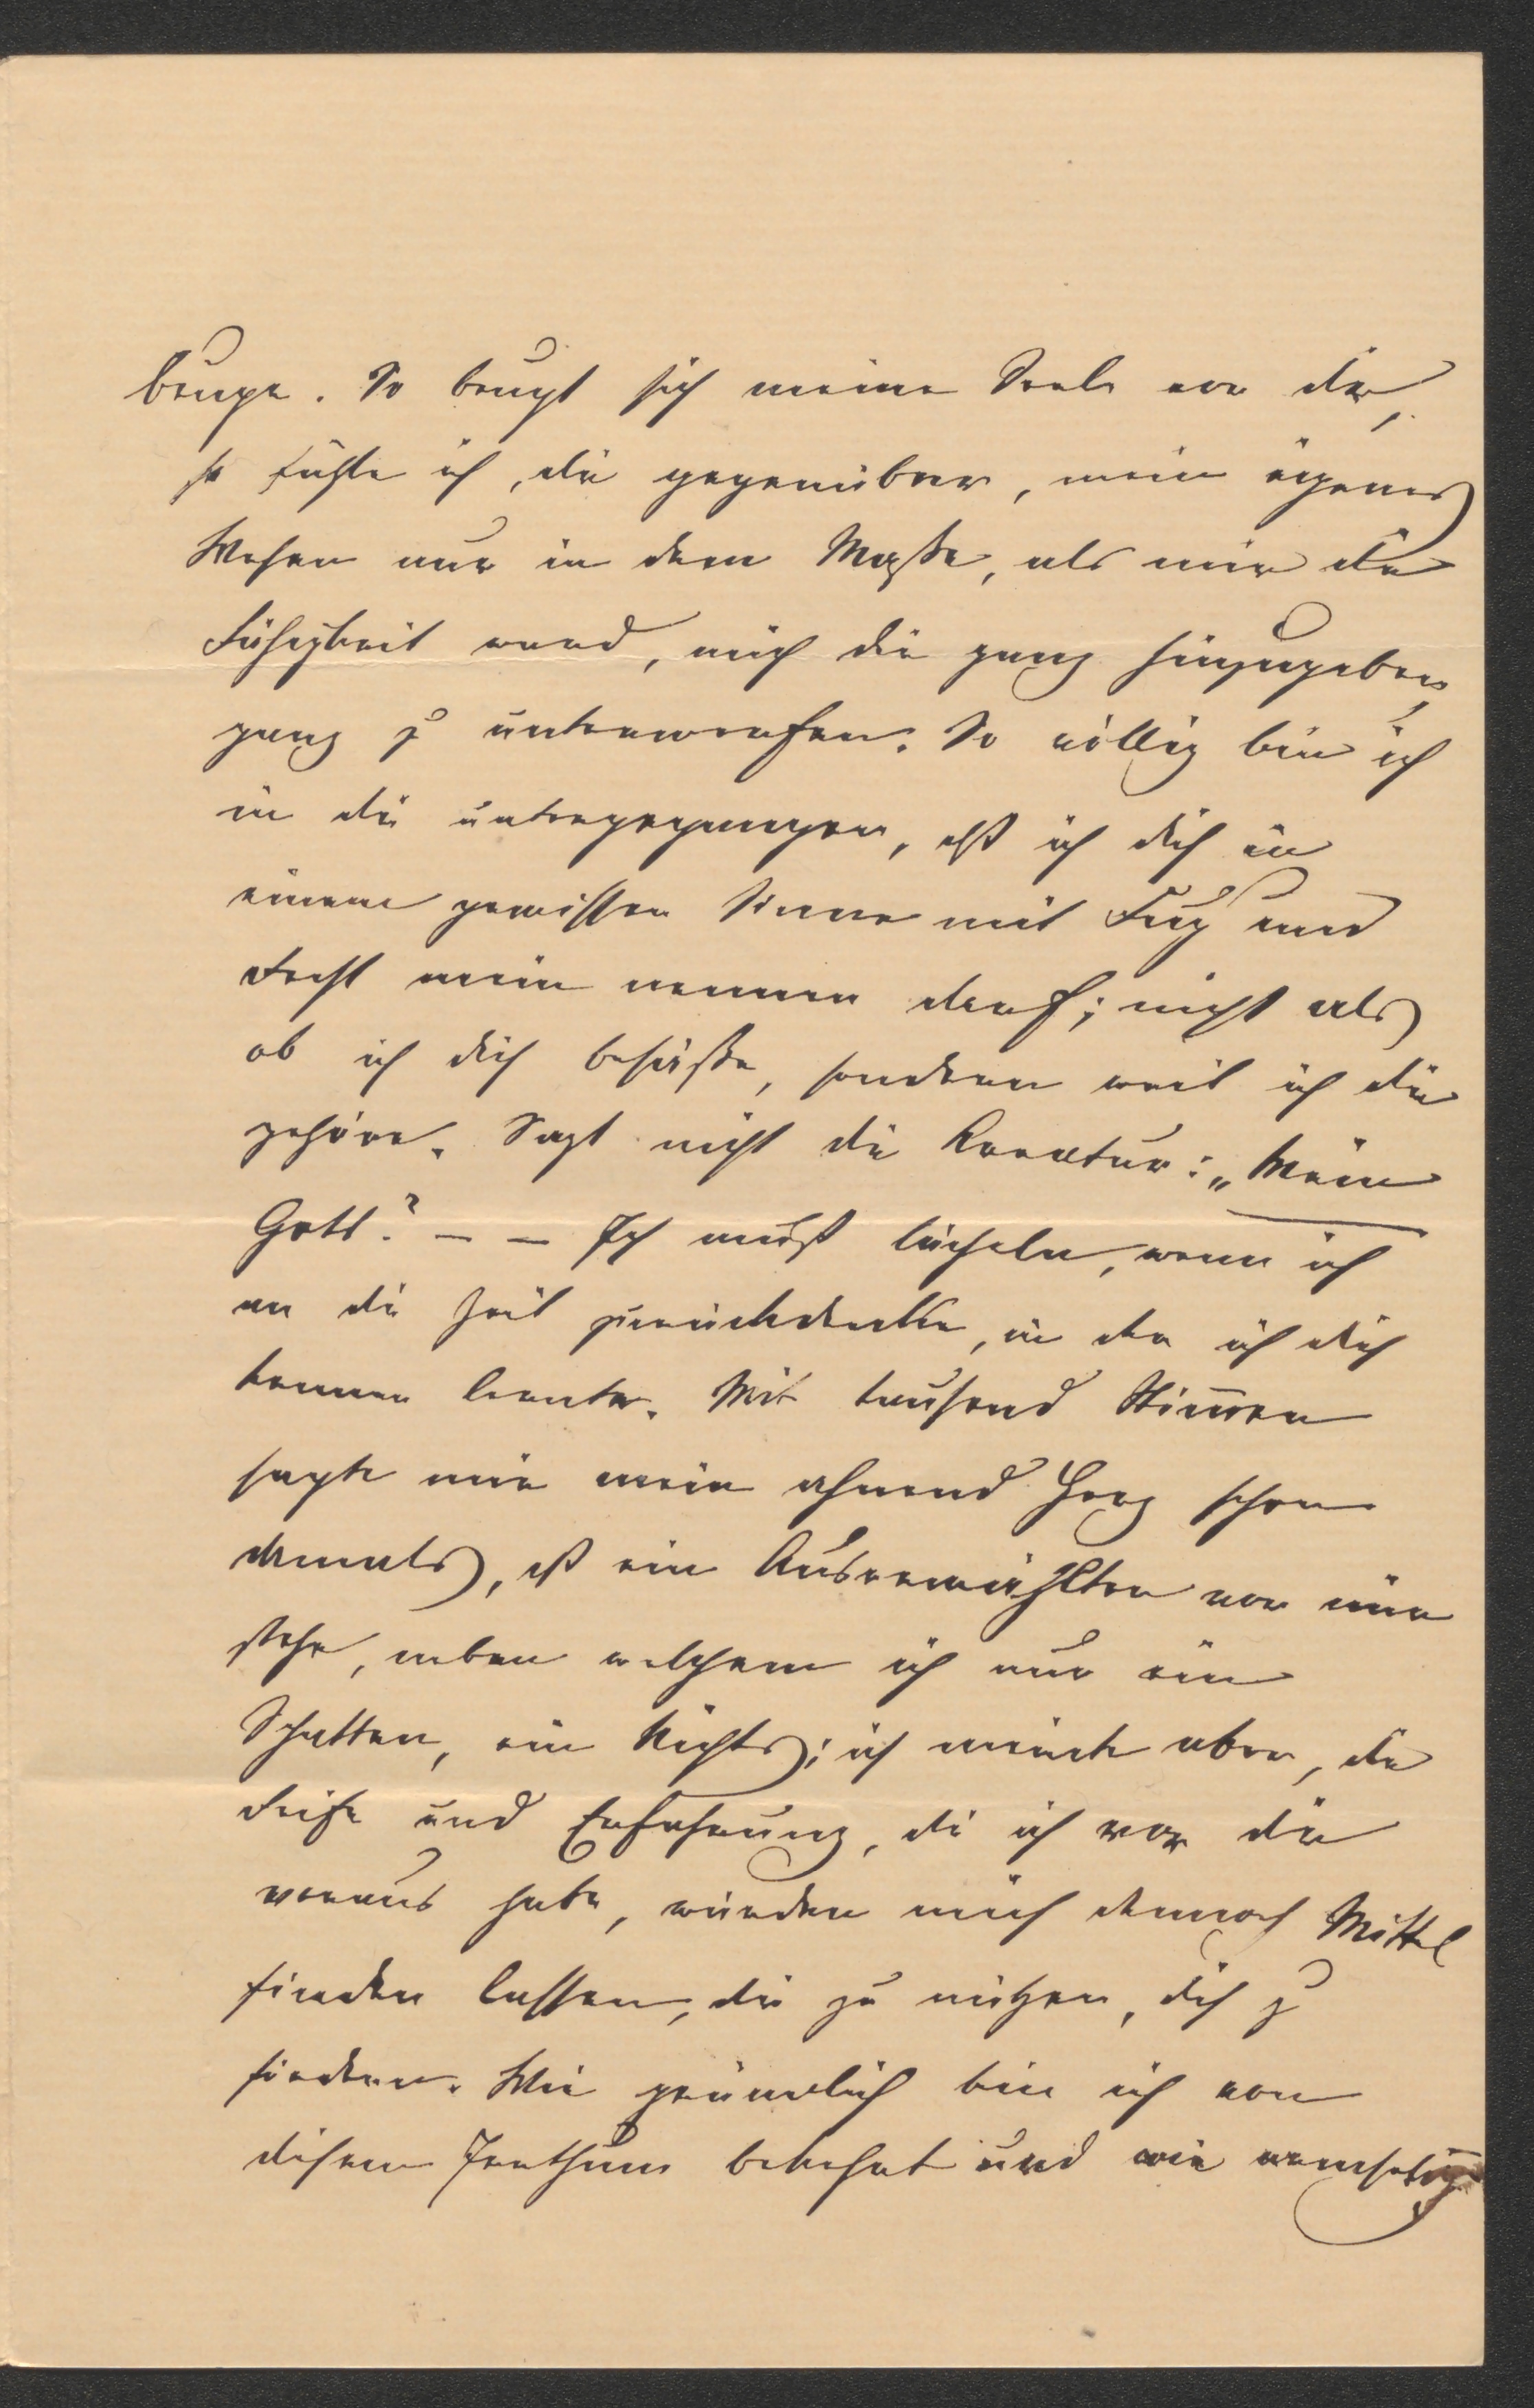 beuge. So beugt sich meine Seele vor dir,
so fühle ich, dir gegenüber, mein eigenes
Wesen nur in dem Maße, als mir die
Fähigkeit ward, mich dir ganz hinzugeben,
ganz zu unterwerfen. So völlig bin ich
in dir untergegangen, dß ich dich in
einem gewissen Sinne mit Fug und
Recht mein nennen darf; nicht als
ob ich dich besäße, sondern weil ich dir
gehöre. Sagt nicht die Kreatur: „Mein
Gott? – – Ich muß lächeln, wenn ich
an die Zeit zurückdenke, in der ich dich
kennen lernte. Mit tausend Stim̅en
sagte mir mein ahnend Herz schon
damals, dß ein Auserwählter vor mir
stehe, neben welchem ich nur ein
Schatten, ein Nichts; ich meinte aber, die
Reife und Erfahrung, die ich vor dir
voraus habe, würden mich dennoch Mittel
finden lassen, dir zu nützen, dich zu
fördern. Wie gründlich bin ich von
diesem Irrthum bekehrt und wie armselig